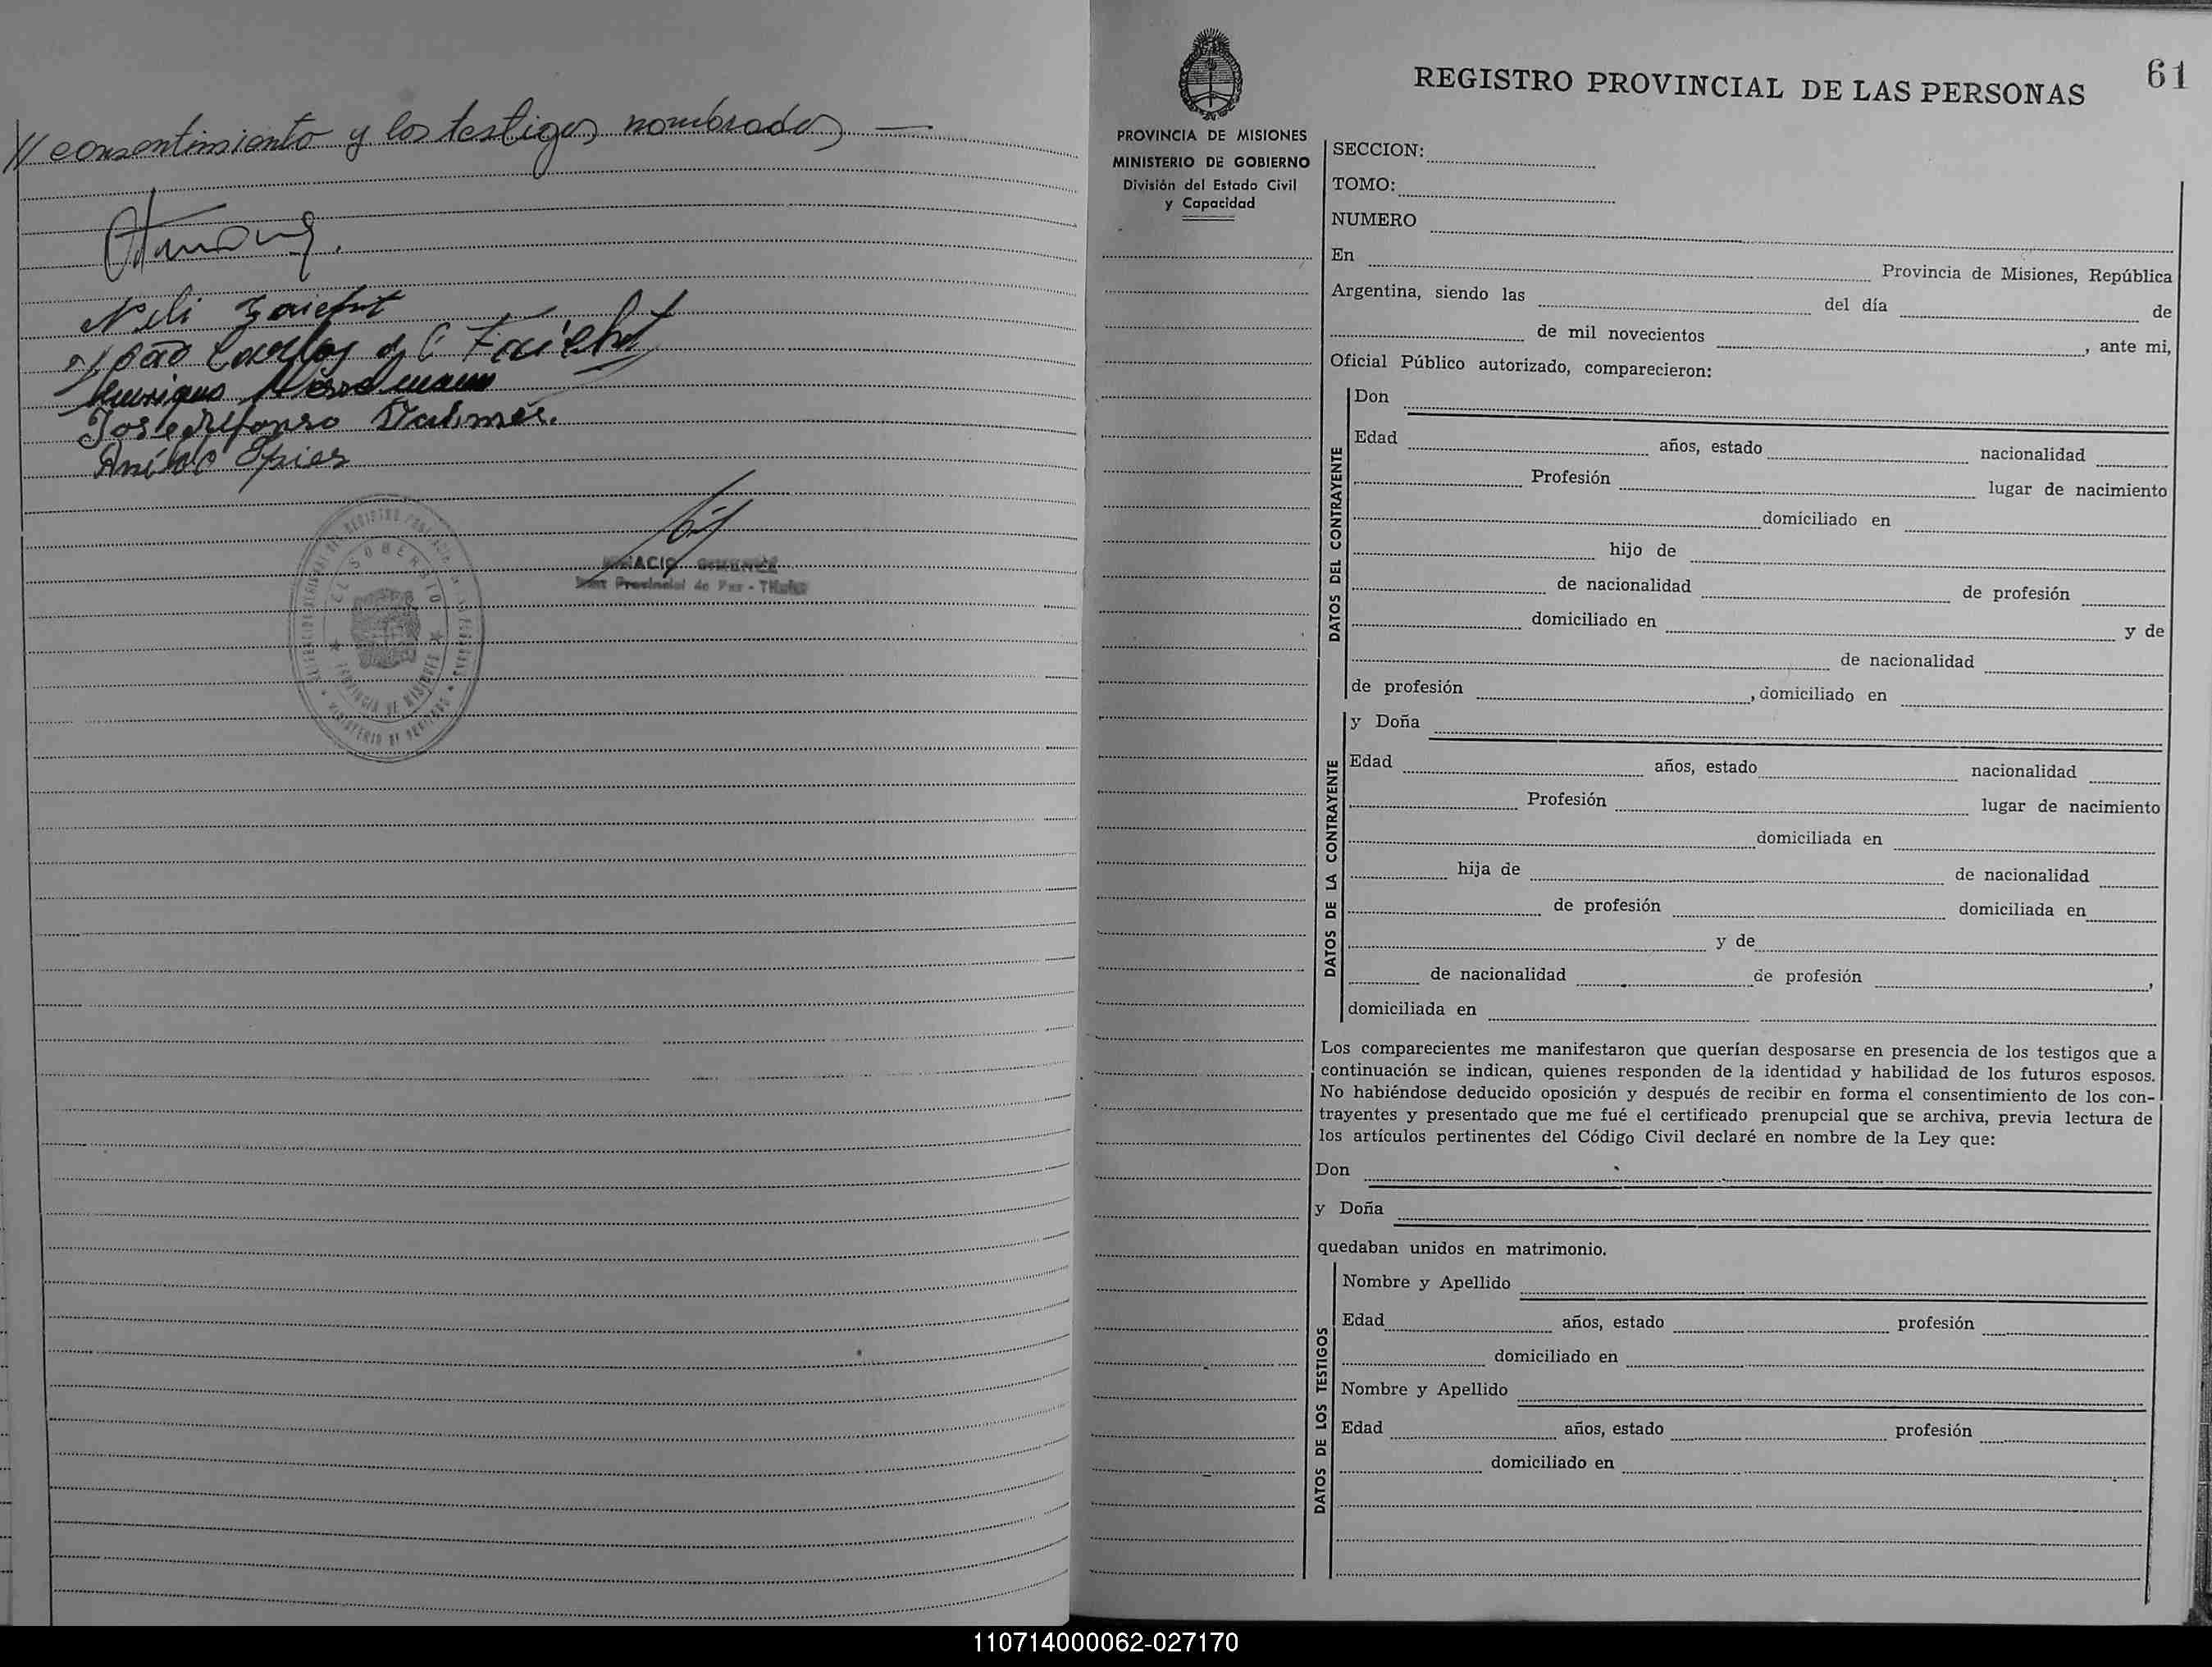 // consentimiento y los testigos nombrados —
Neli
João Carlos
Henrique
José Alfonso
Aníbal Spies
EL SOBERBIO
PROVINCIA DE MISIONES
Juez Provincial de Paz - Titular
61
REGISTRO PROVINCIAL DE LAS PERSONAS
PROVINCIA DE MISIONES
MINISTERIO DE GOBIERNO
División del Estado Civil
y Capacidad
SECCION:
TOMO:
NUMERO
En Provincia de Misiones, República
Argentina, siendo las del día de
de mil novecientos , ante mi,
Oficial Público autorizado, comparecieron:
DATOS DEL CONTRAYENTE
Don
Edad años, estado nacionalidad
Profesión lugar de nacimiento
domiciliado en
hijo de
de nacionalidad de profesión
domiciliado en y de
de nacionalidad
de profesión , domiciliado en
DATOS DE LA CONTRAYENTE
y Doña
Edad años, estado nacionalidad
Profesión lugar de nacimiento
domiciliada en
hija de de nacionalidad
de profesión domiciliada en
y de
de nacionalidad de profesión ,
domiciliada en
Los comparecientes me manifestaron que querían desposarse en presencia de los testigos que a
continuación se indican, quienes responden de la identidad y habilidad de los futuros esposos.
No habiéndose deducido oposición y después de recibir en forma el consentimiento de los con-
trayentes y presentado que me fué el certificado prenupcial que se archiva, previa lectura de
los artículos pertinentes del Código Civil declaré en nombre de la Ley que:
Don
y Doña
quedaban unidos en matrimonio.
DATOS DE LOS TESTIGOS
Nombre y Apellido
Edad años, estado profesión
domiciliado en
Nombre y Apellido
Edad años, estado profesión
domiciliado en
110714000062-027170